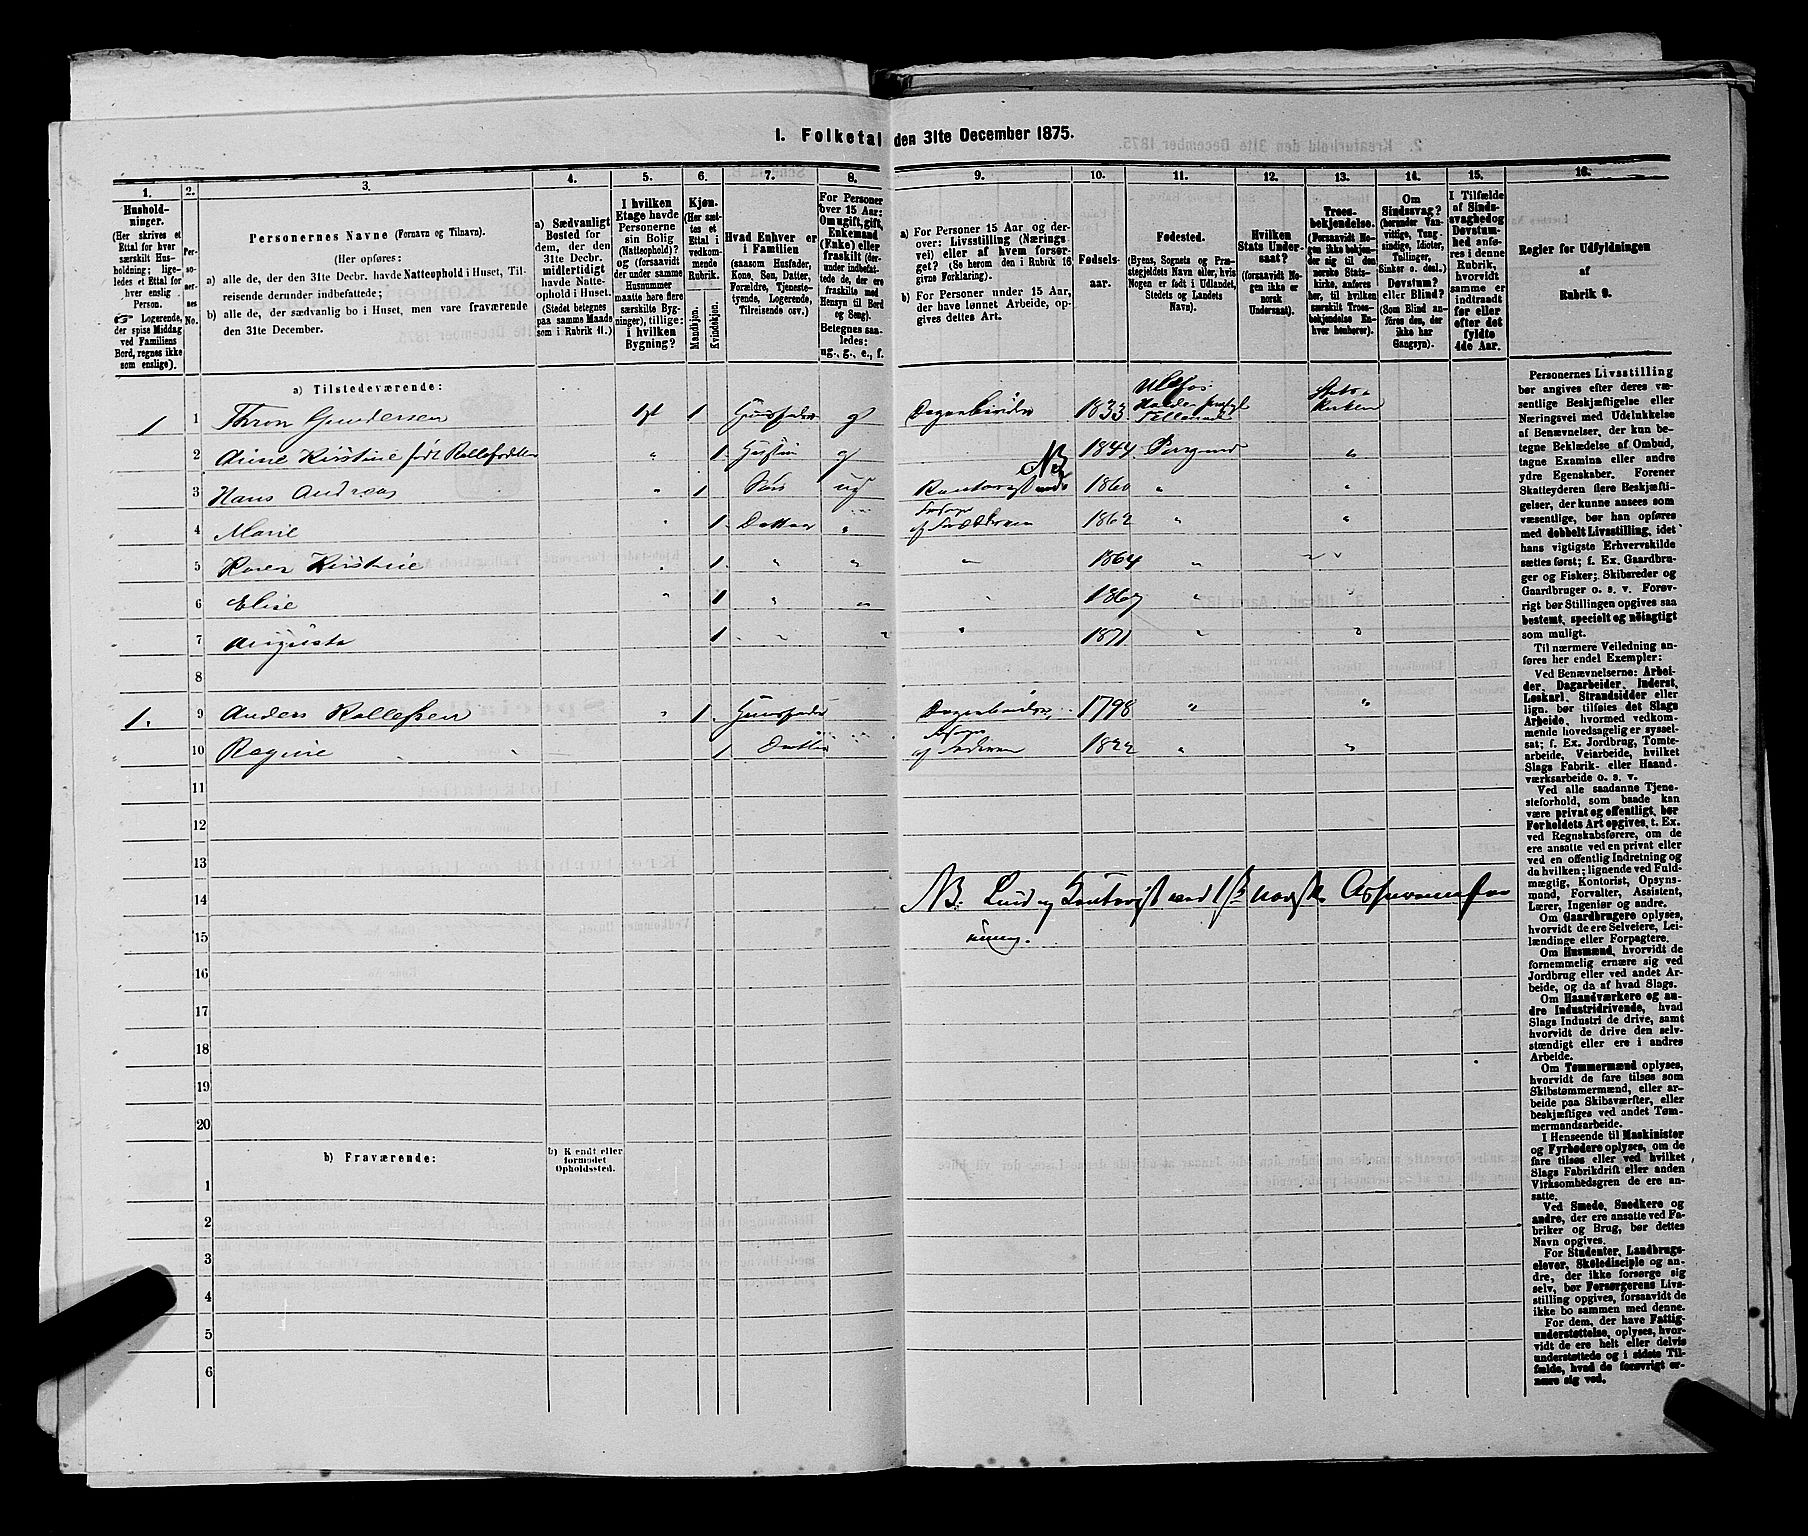 I. Folketal den 31te December 1875.
1.
Hushold-
ninger.
(Her skrives et
Ettal for hver
særskilt Hus-
holdning; lige-
ledes et Ettal for
hver enslig
Person.
Logerende,
der spise Middag
ved Familiens
Bord, regnes ikke
som enslige).
2.
Per-
so-
ner-
nes
No.
3.
Personernes Navne (Fornavn og Tilnavn).
(Her opføres:
a) alle de, der den 31te Decbr. havde Natteophold i Huset, Til-
reisende derunder indbefattede;
b) alle de, der sædvanlig bo i Huset, men vare fraværende
den 31te December.
4.
a) Sædvanligt
Bosted for
dem, der den
31te Decbr.
midlertidigt
havde Natte-
ophold i Huset.
(Stedet betegnes
paa samme Maade
som i Rubrik 11.)
5.
I hvilken
Etage havde
Personerne
sin Bolig
(Natteophold)?
og (forsaavidt
der under samme
Husnummer
maatte høre flere
særskilte Byg-
ninger), tillige:
i hvilken
Bygning?
6.
Kjøn.
(Her sæt-
tes et
Ettal i
vedkom-
mende
Rubrik.
Mandkjøn.
Kvindekjøn.
7.
Hvad Enhver er
i Familien
(saasom Husfader,
Kone, Søn, Datter,
Forældre, Tjeneste-
tyende, Logerende,
Tilreisende osv.)
8.
For Personer
over 15 Aar:
Om ugift, gift,
Enkemand
(Enke) eller
fraskilt (der-
under indbefat-
tede de, der ere
fraskilte med
Hensyn til Bord
og Seng).
Betegnes saa-
ledes:
ug., g., e., f.
9.
a) For Personer 15 Aar og der-
over: Livsstilling (Nærings-
vei) eller af hvem forsør-
get? (Se herom den i Rubrik 16
givne Forklaring).
b) For Personer under 15 Aar,
der have lønnet Arbeide, op-
gives dettes Art.
10.
Fødsels-
aar.
11.
Fødested.
(Byens, Sognets og Præ-
stegjeldets Navn eller, hvis
Nogen er født i Udlandet,
Stedets og Landets
Navn).
12.
Hvilken
Stats Under-
saat?
(forsaavidt No-
gen ikke er
norsk
Undersaat).
13.
Troes-
bekjendelse.
(Forsaavidt No-
gen ikke bekjen-
der sig til den
norske Stats-
kirke, anføres
her, til hvilken
særskilt Troes-
bekjendelse En-
hver henhører).
14.
Om
Sindssvag?
(herunder Van-
vittige, Tung-
sindige, Idioter,
Tullinger,
Sinker o. desl.)
Døvstum?
eller Blind?
(Som Blind an-
føres den, der
ikke har
Gangsyn).
15.
I Tilfælde
af Sinds-
svaghed og
Døvstum-
hed anfø-
res i denne
Rubrik,
hvorvidt
samme er
indtraadt
før eller
efter det
fyldte
4de Aar.
16.
Regler for Udfyldningen
af
Rubrik 9.
a) Tilstedeværende:
1 1 Thron Gundersen 1st 1 Husfader g Dagarbeider 1833 Ulefos Holden Tellemark Stats Kirken
2 Anne Kirstine født Rollefsdatter " 1 Hustru g 1844 Porsgrund "
3 Hans Andreas " 1 Søn ug NB 1860 " "
4 Marie " 1 Datter " Forsørges af Faderen 1862 " "
5 Karen Kirstine " 1 " " " 1864 " "
6 Elise " 1 " " " 1867 " "
7 Augusta 1 " " " 1871 " "
8
1. 9 Anders Rollefsen " 1 Husfader Dagarbeider 1798 " "
10 Regine 1 Datter Forsørges af Faderen 1822 " "
11
12
13
14 NB. Bud og Kontorist ved norske Assurancefor
15 ening.
16
17
18
19
20
b) Fraværende:
b) Kjendt eller
formodet
Opholdssted.
1
2
3
4
5
6
Personernes Livsstilling
bør angives efter deres væ-
sentlige Beskjæftigelse eller
Næringsvei med Udelukkelse
af Benævnelser, der kun be-
tegne Beklædelse af Ombud,
tagne Examina eller andre
ydre Egenskaber. Forener
Skatteyderen flere Beskjæfti-
gelser, der kunne ansees som
væsentlige, bør han opføres
med dobbelt Livsstilling, idet
hans vigtigste Erhvervskilde
sættes først; f. Ex. Gaardbru-
ger og Fisker; Skibsreder og
Gaardbruger o. s. v. Forøv-
rigt bør Stillingen opgives saa
bestemt, specielt og nøiagtigt
som muligt.
Til nærmere Veiledning an-
føres her endel Exempler:
Ved Benævnelserne: Arbei-
der, Dagarbeider, Inderst,
Løskarl, Strandsidder eller
lign. bør tilføies det Slags
Arbeide, hvormed vedkom-
mende hovedsagelig er syssel-
sat; f. Ex. Jordbrug, Tomte-
arbeide, Veiarbeide, hvilket
Slags Fabrik- eller Haand-
værksarbeide o. s. v.
Ved alle saadanne Tjene-
steforhold, som baade kan
være privat og offentligt, bør
Forholdets Art opgives, t. Ex.
ved Regnskabsførere, om de
ere ansatte ved en privat eller
ved en offentlig Indretning og
da hvilken; lignende ved Fuld-
mægtig, Kontorist, Opsyns-
mand, Forvalter, Assistent,
Lærer, Ingeniør og andre.
Om Gaardbrugere oplyses,
hvorvidt de ere Selveiere, Lei-
lændinge eller Forpagtere.
Om Husmænd, hvorvidt de
fornemmelig ernære sig ved
Jordbrug eller ved andet Ar-
beide, og da af hvad Slags.
Om Haandværkere og an-
dre Industridrivende, hvad
Slags Industri de drive, samt
hvorvidt de drive den selv-
stændigt eller ere i andres
Arbeide.
Om Tømmermænd oplyses,
hvorvidt de fare tilsøs som
Skibstømmermænd, eller ar-
beide paa Skibsværfter, eller
beskjæftiges ved andet Tøm-
mermandsarbeide.
I Henseende til Maskinister
og Fyrbødere oplyses, om de
fare tilsøs eller ved hvilket
Slags Fabrikdrift eller anden
Virksomhedsgren de ere an-
satte.
Ved Smede, Snedkere og
andre, der ere ansatte ved Fa-
briker og Brug, bør dettes
Navn opgives.
For Studenter, Landbrugs-
elever, Skoledisciple og an-
dre, der ikke forsørge sig
selv, bør Forsørgerens Livs-
stilling opgives, forsaavidt de
ikke bo sammen med denne.
For dem, der have Fattig-
understøttelse, oplyses, hvor-
vidt de ere helt eller delvis
understøttede og i sidste Til-
fælde, hvad de forøvrigt er-
nære sig ved.